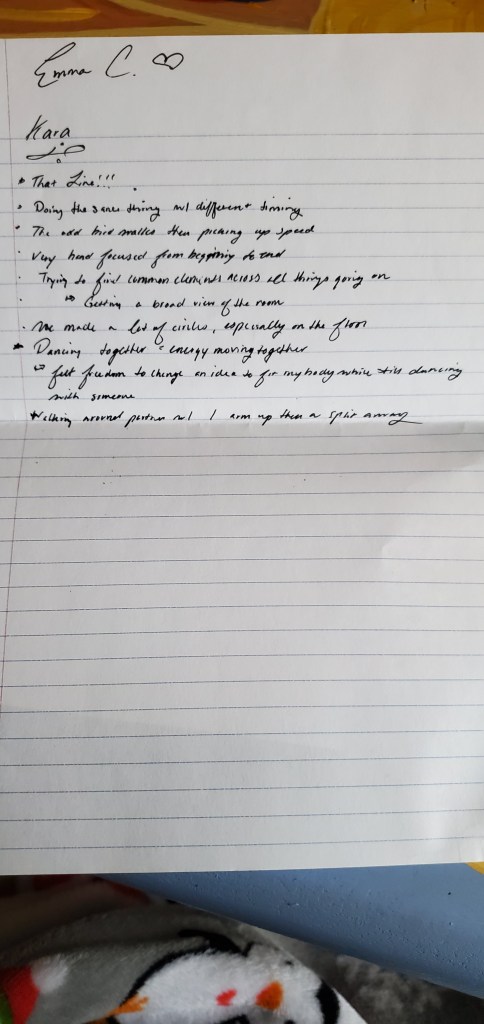 Emma C. ♡
Kara
* That Line!!!
• Doing the same thing w/ different timing
• The odd bird walks then picking up speed
• Very hand focused from beginning to end
• Trying to find common elements across all things going on
↳ Getting a broad view of the room
• We made a lot of circles, especially on the floor
* Dancing together = energy moving together
↳ felt freedom to change an idea to fit my body while still dancing
with someone
* Walking around partner w/ 1 arm up then a split away